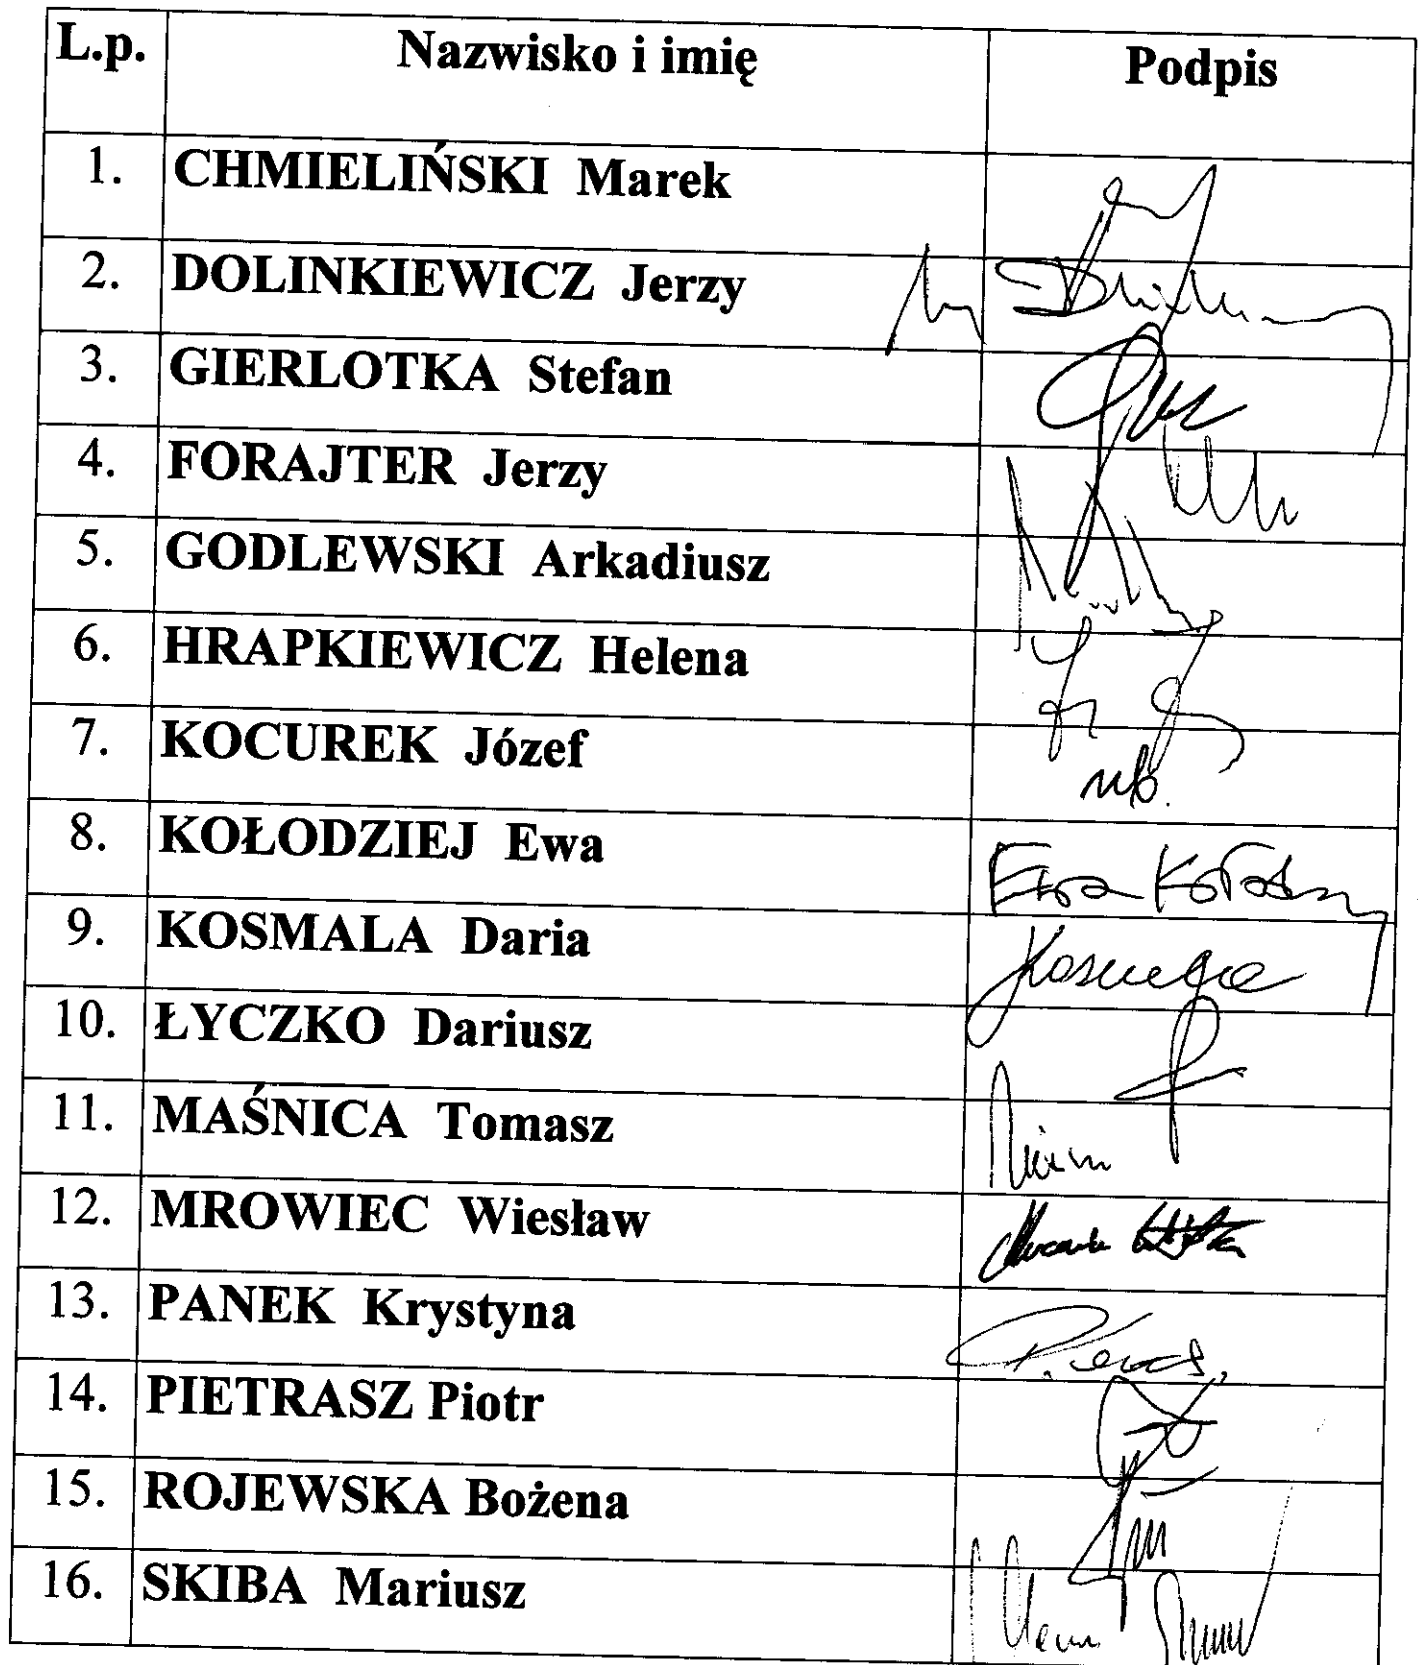 L.p. Nazwisko i imię Podpis
1. CHMIELIŃSKI Marek
2. DOLINKIEWICZ Jerzy
3. GIERLOTKA Stefan
4. FORAJTER Jerzy
5. GODLEWSKI Arkadiusz
6. HRAPKIEWICZ Helena
7. KOCUREK Józef nb.
8. KOŁODZIEJ Ewa Ewa
9. KOSMALA Daria
10. ŁYCZKO Dariusz
11. MAŚNICA Tomasz
12. MROWIEC Wiesław
13. PANEK Krystyna
14. PIETRASZ Piotr
15. ROJEWSKA Bożena
16. SKIBA Mariusz